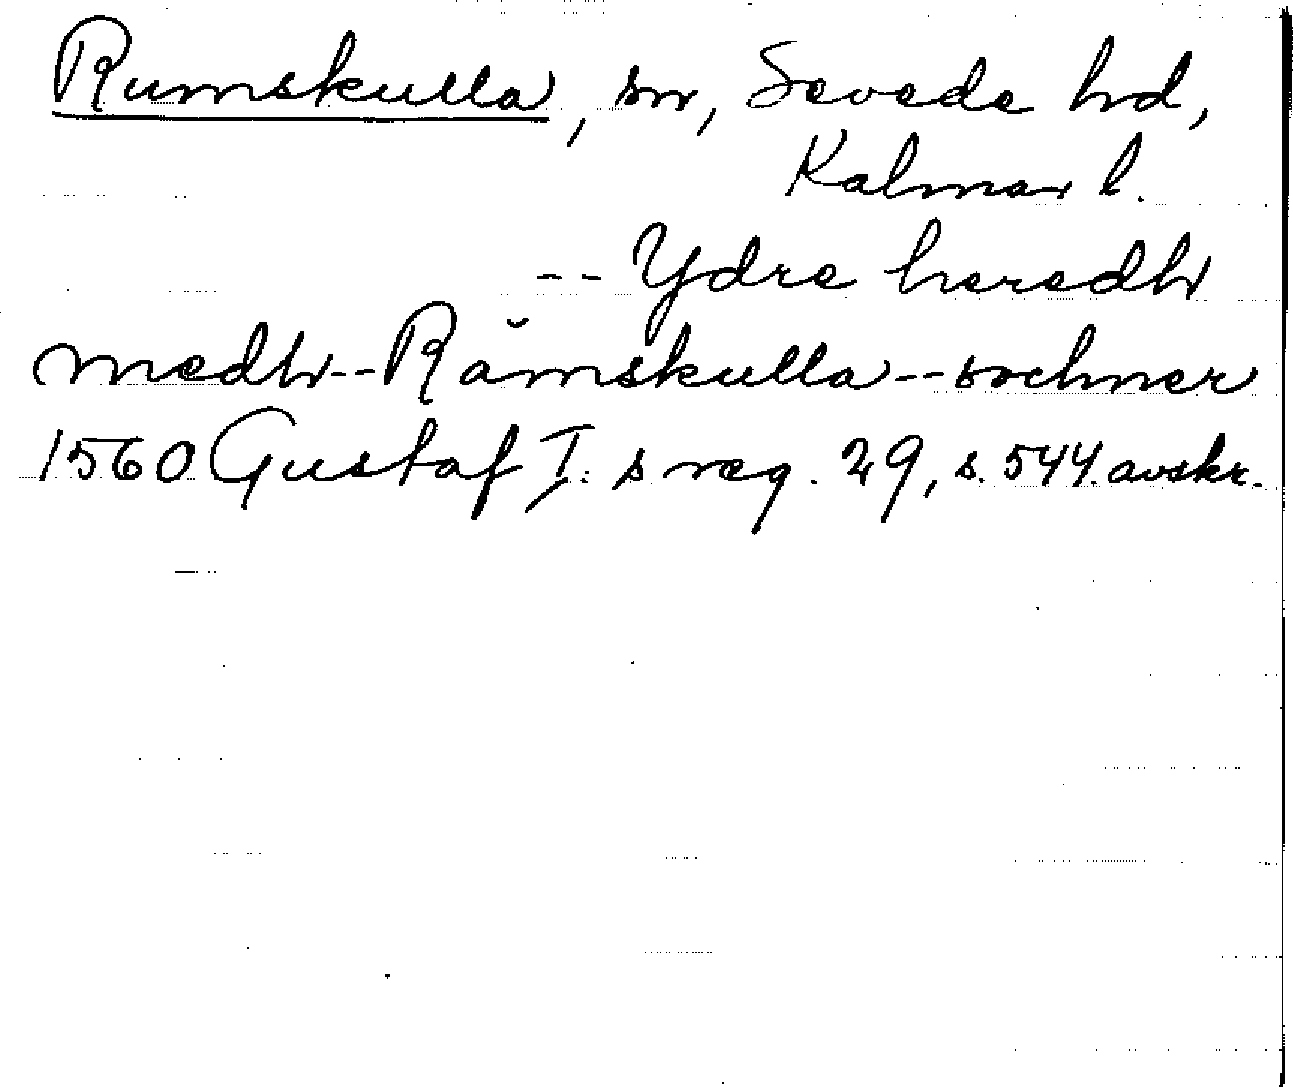 Rumskulla, sn, Sevede hd,
Kalmar l.
-- Ydre heredh
medh -- Råmskulla -- sochner
1560 Gustaf I:s reg. 29, s. 544. avskr.